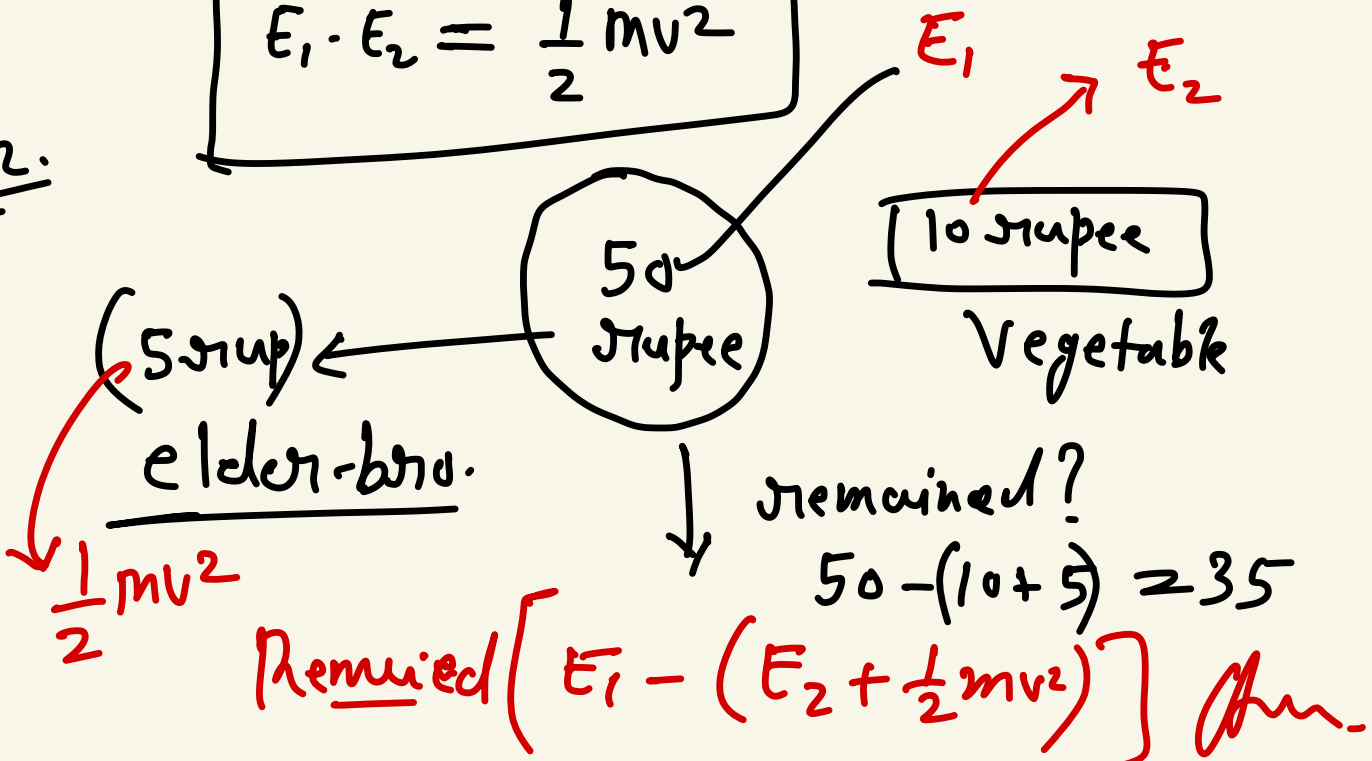 E₁ - E₂ = 1/2 mv²
E₁
E₂
2.
50 rupee
10 rupee
Vegetable
(5 rup)
elder-bro.
remained?
50 - (10 + 5) = 35
1/2 mv²
[E₁ - (E₂ + 1/2 mv²)]